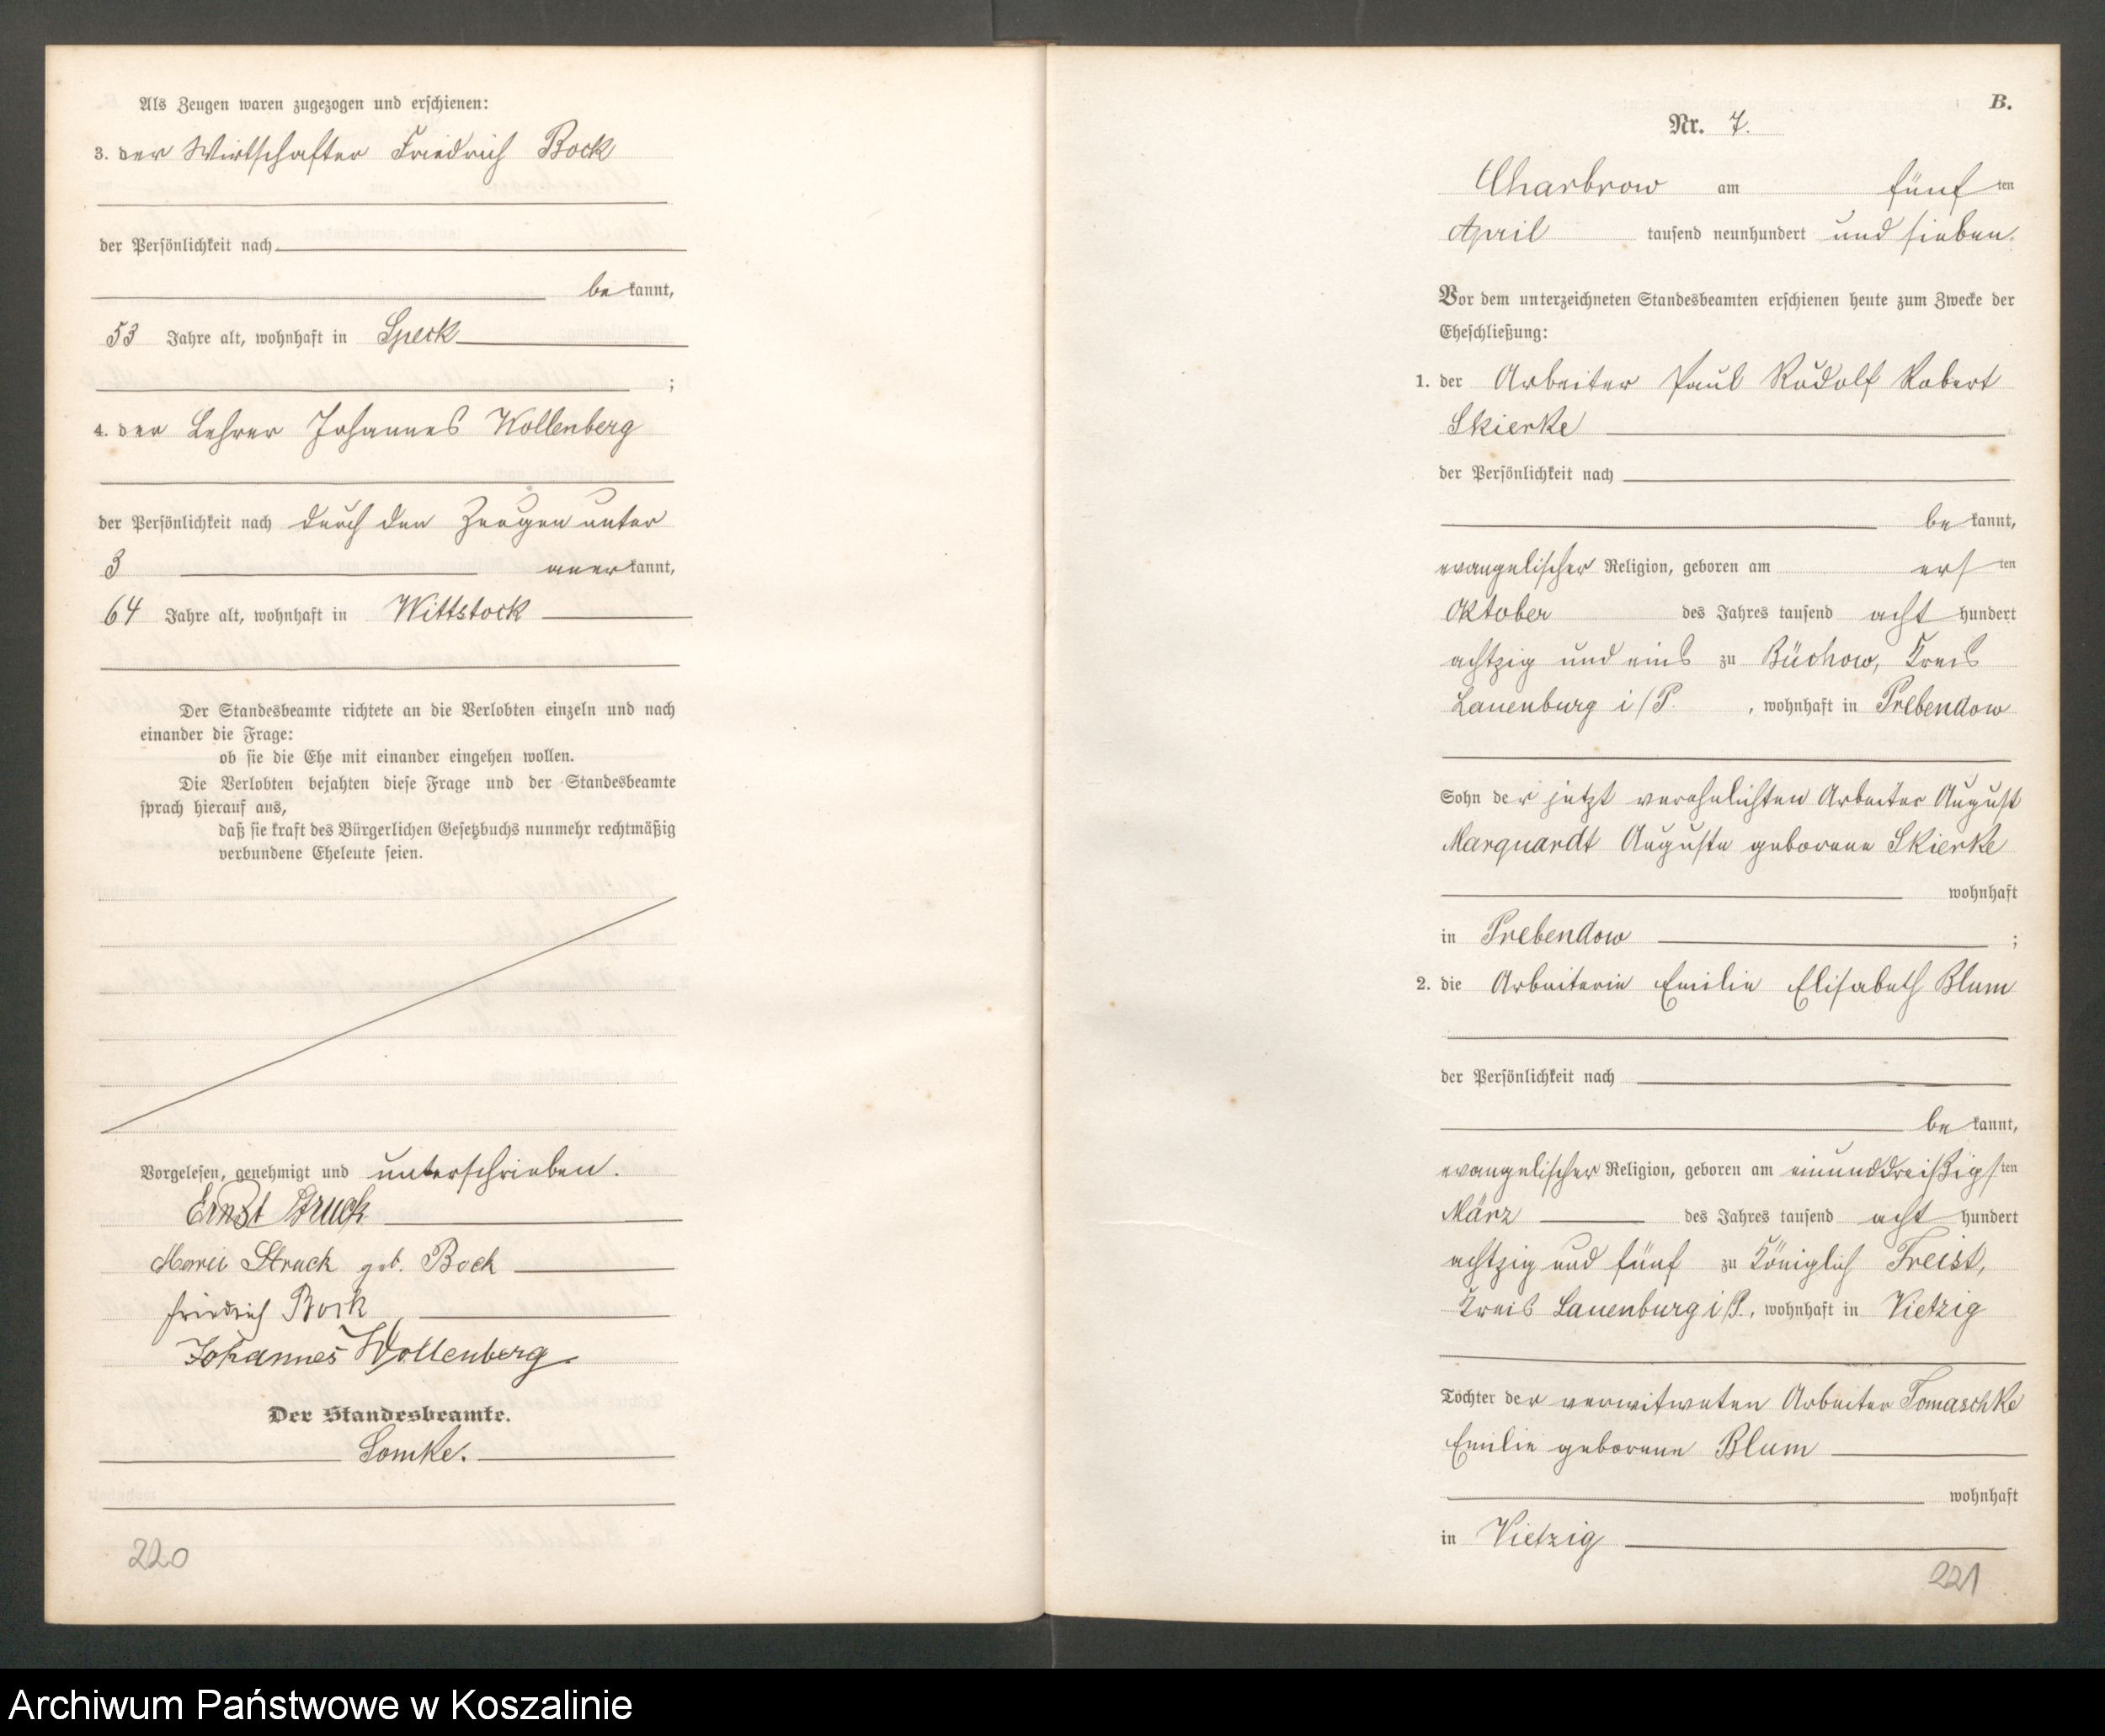 Als Zeugen waren zugezogen und erschienen:
3. der Wirtschafter Friedrich Bock
der Persönlichkeit nach
be kannt,
53 Jahre alt, wohnhaft in Speck
;
4. der Lehrer Johannes Wollenberg
der Persönlichkeit nach durch den Zeugen unter
3 aner kannt,
64 Jahre alt, wohnhaft in Wittstock
Der Standesbeamte richtete an die Verlobten einzeln und nach
einander die Frage:
ob sie die Ehe mit einander eingehen wollen.
Die Verlobten bejahten diese Frage und der Standesbeamte
sprach hierauf aus,
daß sie kraft des Bürgerlichen Gesetzbuchs nunmehr rechtmäßig
verbundene Eheleute seien.
Vorgelesen, genehmigt und unterschrieben.
Ernst Struck
Marie Struck geb. Bock
Friedrich Bock
Johannes Wollenberg
Der Standesbeamte.
Lomke.
220
B.
Nr. 7.
Charbrow am fünf ten
April tausend neunhundert und sieben.
Vor dem unterzeichneten Standesbeamten erschienen heute zum Zwecke der
Eheschließung:
1. der Arbeiter Paul Rudolf Robert
Skierke
der Persönlichkeit nach
be kannt,
evangelischer Religion, geboren am ers ten
Oktober des Jahres tausend acht hundert
achtzig und eins zu Büchow, Kreis
Lauenburg i/P. , wohnhaft in Prebendow
Sohn der jetzt verehelichten Arbeiter August
Marquardt Auguste geborene Skierke
wohnhaft
in Prebendow ;
2. die Arbeiterin Emilie Elisabeth Blum
der Persönlichkeit nach
be kannt,
evangelischer Religion, geboren am einunddreißigs ten
März des Jahres tausend acht hundert
achtzig und fünf zu Königlich Freist,
Kreis Lauenburg i/P., wohnhaft in Vietzig
Tochter der verwitweten Arbeiter Tomaschke
Emilie geborene Blum
wohnhaft
in Vietzig
221
Archiwum Państwowe w Koszalinie